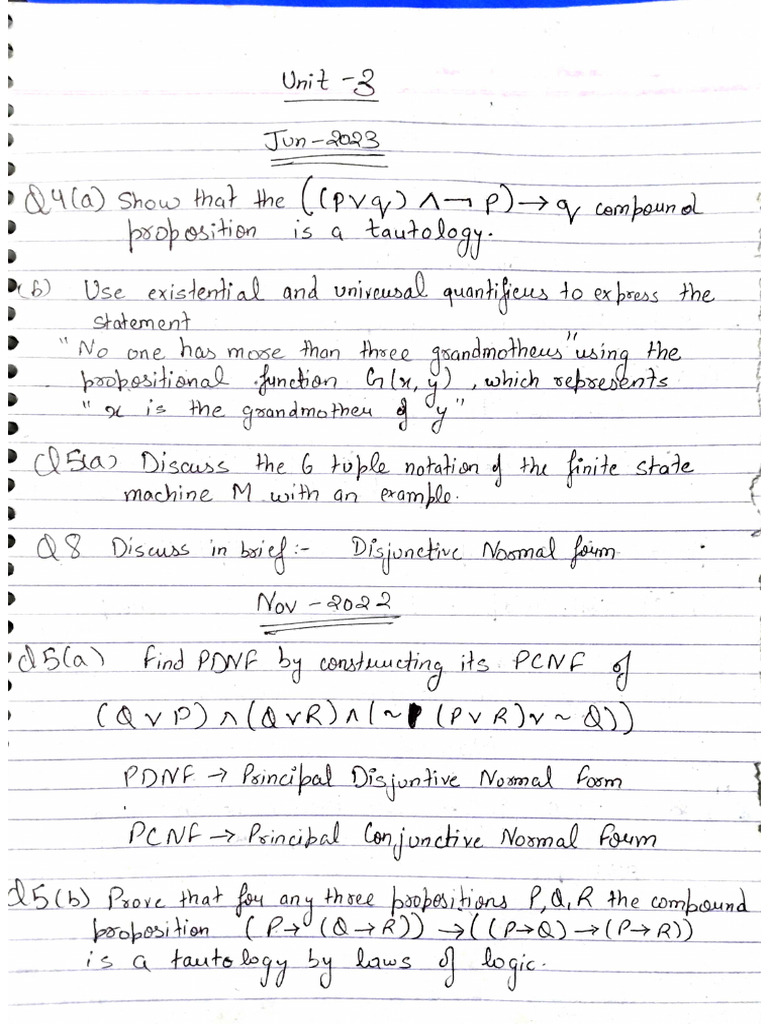 Unit - 3
Jun - 2023
Q4(a) Show that the ((p∨q) ∧ ¬ p) → q compound
proposition is a tautology.
(b) Use existential and universal quantifiers to express the
statement
"No one has more than three grandmothers" using the
propositional function G(x, y), which represents
"x is the grandmother of y"
Q5(a) Discuss the 6 tuple notation of the finite state
machine M with an example.
Q8 Discuss in brief :- Disjunctive Normal form
Nov - 2022
Q5(a) Find PDNF by constructing its PCNF of
(Q ∨ P) ∧ (Q ∨ R) ∧ (~ (P ∨ R) ∨ ~ Q))
PDNF → Principal Disjuntive Normal Form
PCNF → Principal Conjunctive Normal Form
Q5(b) Prove that for any three propositions P, Q, R the compound
proposition (P → (Q → R)) → ((P → Q) → (P → R))
is a tautology by laws of logic.